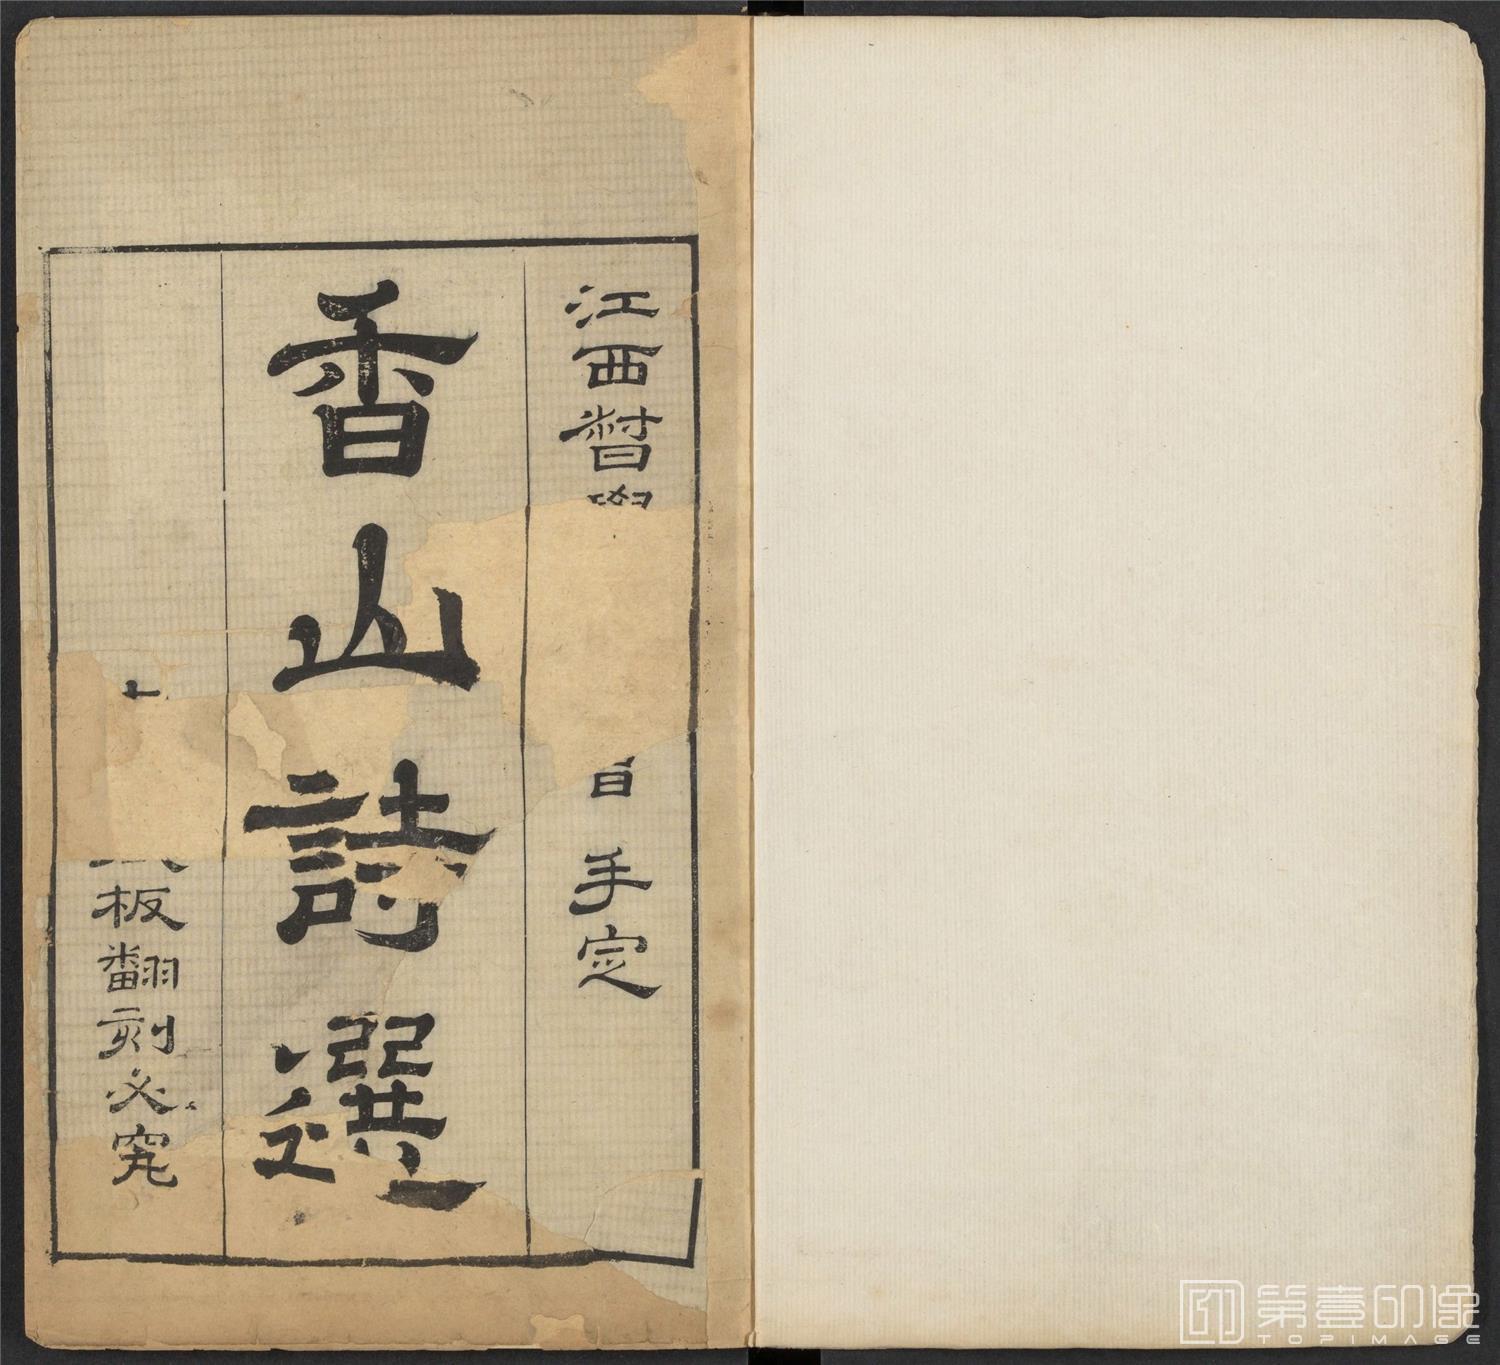 江西督
手定
香山詩選
板翻刻必究
第壹印像
TOPIMAGE